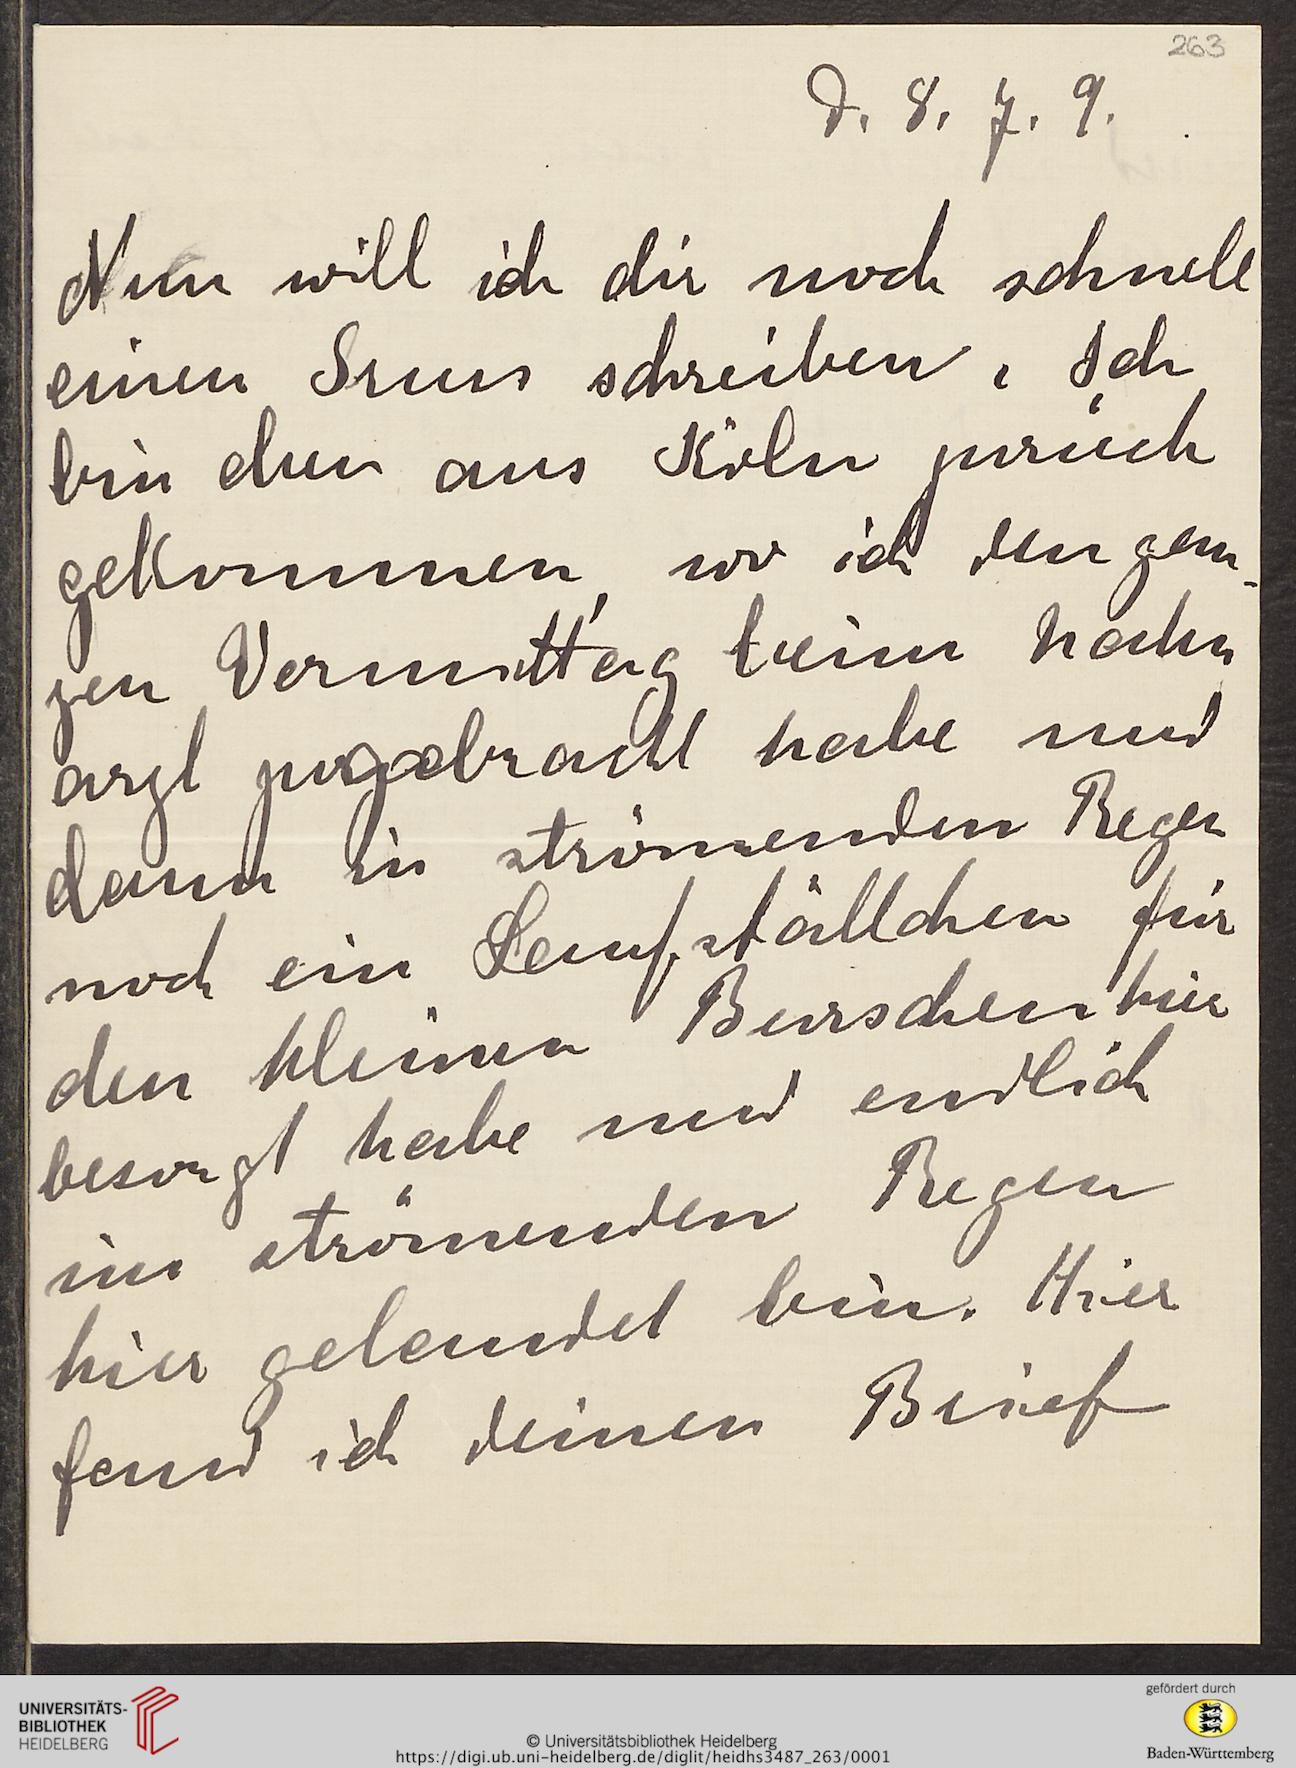 263
D. 8. 7. 9.
Nun will ich dir noch schnell
einen Gruss schreiben, Ich
bin eben aus Köln zurück
gekommen, wo ich den gan-
zen Vormittag beim Zahn
arzt zugebracht habe und
dann in strömenden Regen
noch ein Laufställchen für
den kleinen Burschen hier
besorgt habe und endlich
im strömenden Regen
hier gelandet bin. Hier
fand ich deinen Brief
UNIVERSITÄTS-
BIBLIOTHEK
HEIDELBERG
© Universitätsbibliothek Heidelberg
https://digi.ub.uni-heidelberg.de/diglit/heidhs3487_263/0001
gefördert durch
Baden-Württemberg